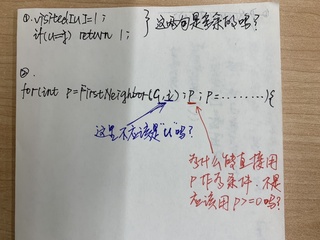 ①. visited[u]=1;
if(u=j) return 1; } 这两句是多余的吗?
②.
for(int p=FirstNeighbor(G,i);p;p=........){
这里不应该是"u"吗?
为什么能直接用
P作为条件.不是
应该用p>=0吗?